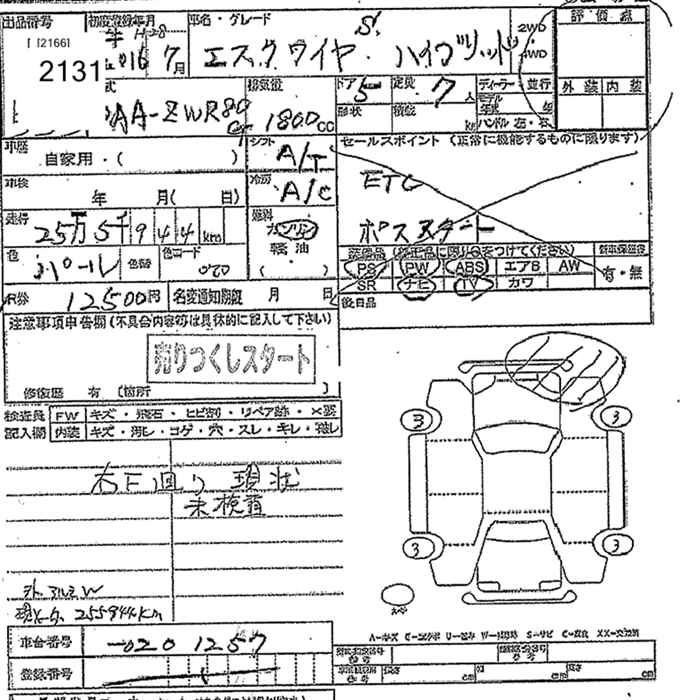 出品番号 初度登録年月 車名・グレード 2WD 評価点
[ [2166]
2131
H28
2016 年 7月
エスクワイヤ ハイブリッド S
4WD
排気量 ドア 5 定員 7人 ディーラー・並行 外装 内装
AA-ZWR80 1800cc 形状 積載 kg モデル年式 年
ハンドル 左・右
車歴 自家用・( ) シフト A/T セールスポイント (正常に機能するものに限ります)
車検 年 月( 日) 冷房 A/C ETC
走行 25万5千944km 燃料 ガソリン 軽油 ( )
色 パール 色替 色コード 070
装備品 (純正品に限り○をつけてください)
PS PW ABS エアB AW 有・無
SR ナビ TV カワ
R券 12500円 名変通知期限 月 日 後日品
注意事項申告欄(不具合内容等は具体的に記入して下さい)
売りつくしスタート
修復歴 有 (箇所 )
検査員 FW キズ・飛石・ヒビ割・リペア跡・×要
記入欄 内装 キズ・汚レ・コゲ・穴・スレ・キレ・破レ
右下回り 現状
未検査
3 3
3 3
外アルミW
255944km
A-キズ U-凹み S-サビ C-腐食 XX-交換済
車台番号 -0201257
登録番号
長さ cm 巾 cm 高さ cm